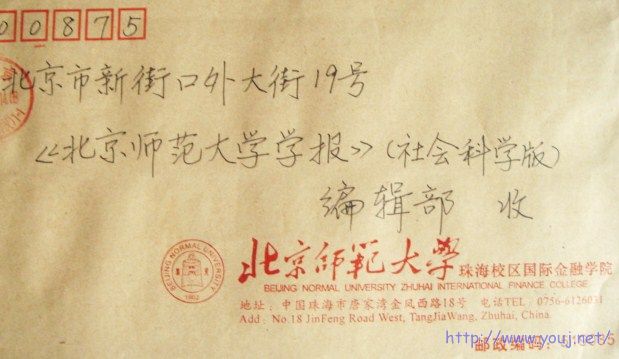 00875
北京市新街口外大街19号
《北京师范大学学报》(社会科学版)
编辑部 收
BEIJING NORMAL UNIVERSITY
1902
北京师范大学 珠海校区国际金融学院
BEIJING NORMAL UNIVERSITY ZHUHAI INTERNATIONAL FINANCE COLLEGE
地址: 中国珠海市唐家湾金凤西路18号 电话TEL: 0756-6126031
Add: No.18 JinFeng Road West, TangJiaWang, Zhuhai, China.
邮政编码:
http://www.youj.net/